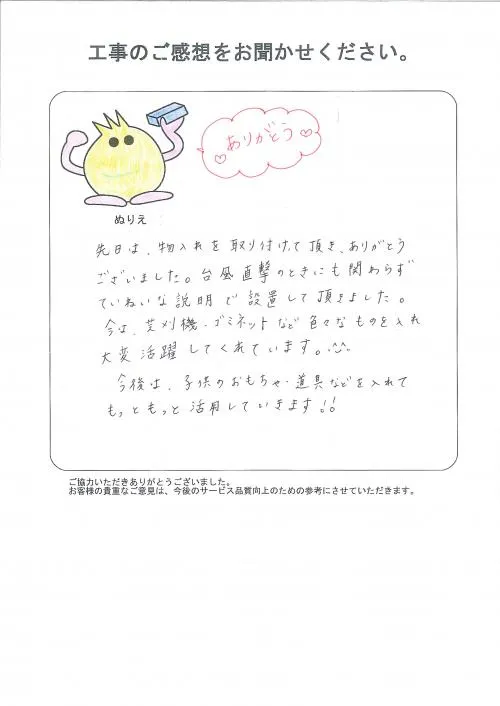 工事のご感想をお聞かせください。
ありがとう
ぬりえ
先日は、物入れを取り付けて頂き、ありがとう
ございました。台風直撃のときにも関わらず
ていねいな説明で設置して頂きました。
今は、芝刈機・ゴミネットなど色々なものを入れ
大変活躍してくれています。^^
今後は、子供のおもちゃ・道具などを入れて
もっともっと活用していきます!!
ご協力いただきありがとうございました。
お客様の貴重なご意見は、今後のサービス品質向上のための参考にさせていただきます。